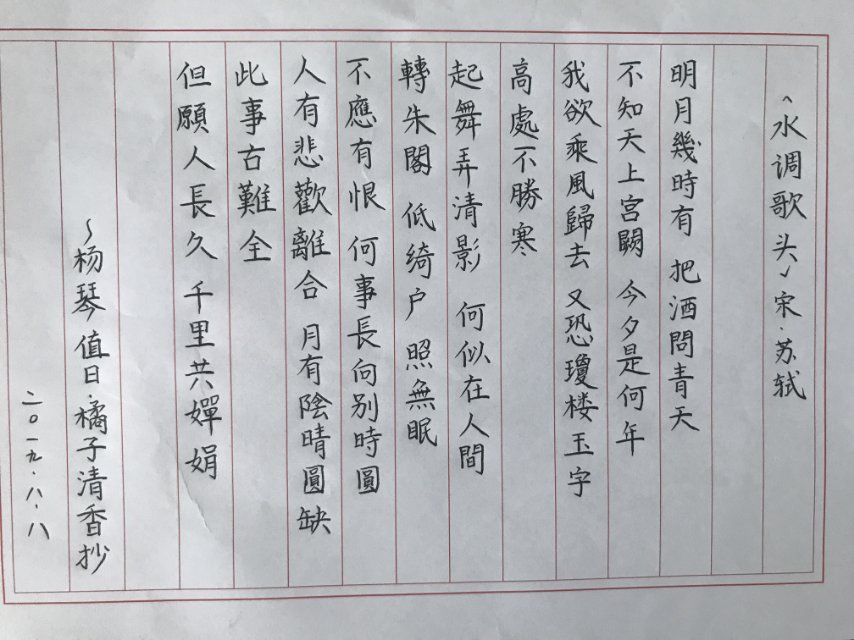 《水调歌头》宋·苏轼
明月幾時有 把酒問青天
不知天上宫闕 今夕是何年
我欲乘風歸去 又恐瓊楼玉字
高處不勝寒
起舞弄清影 何似在人間
轉朱閣 低绮户 照無眠
不應有恨 何事長向别時圓
人有悲歡離合 月有陰晴圓缺
此事古難全
但願人長久 千里共嬋娟
~杨琴值日·橘子清香抄
二〇一九·八·八